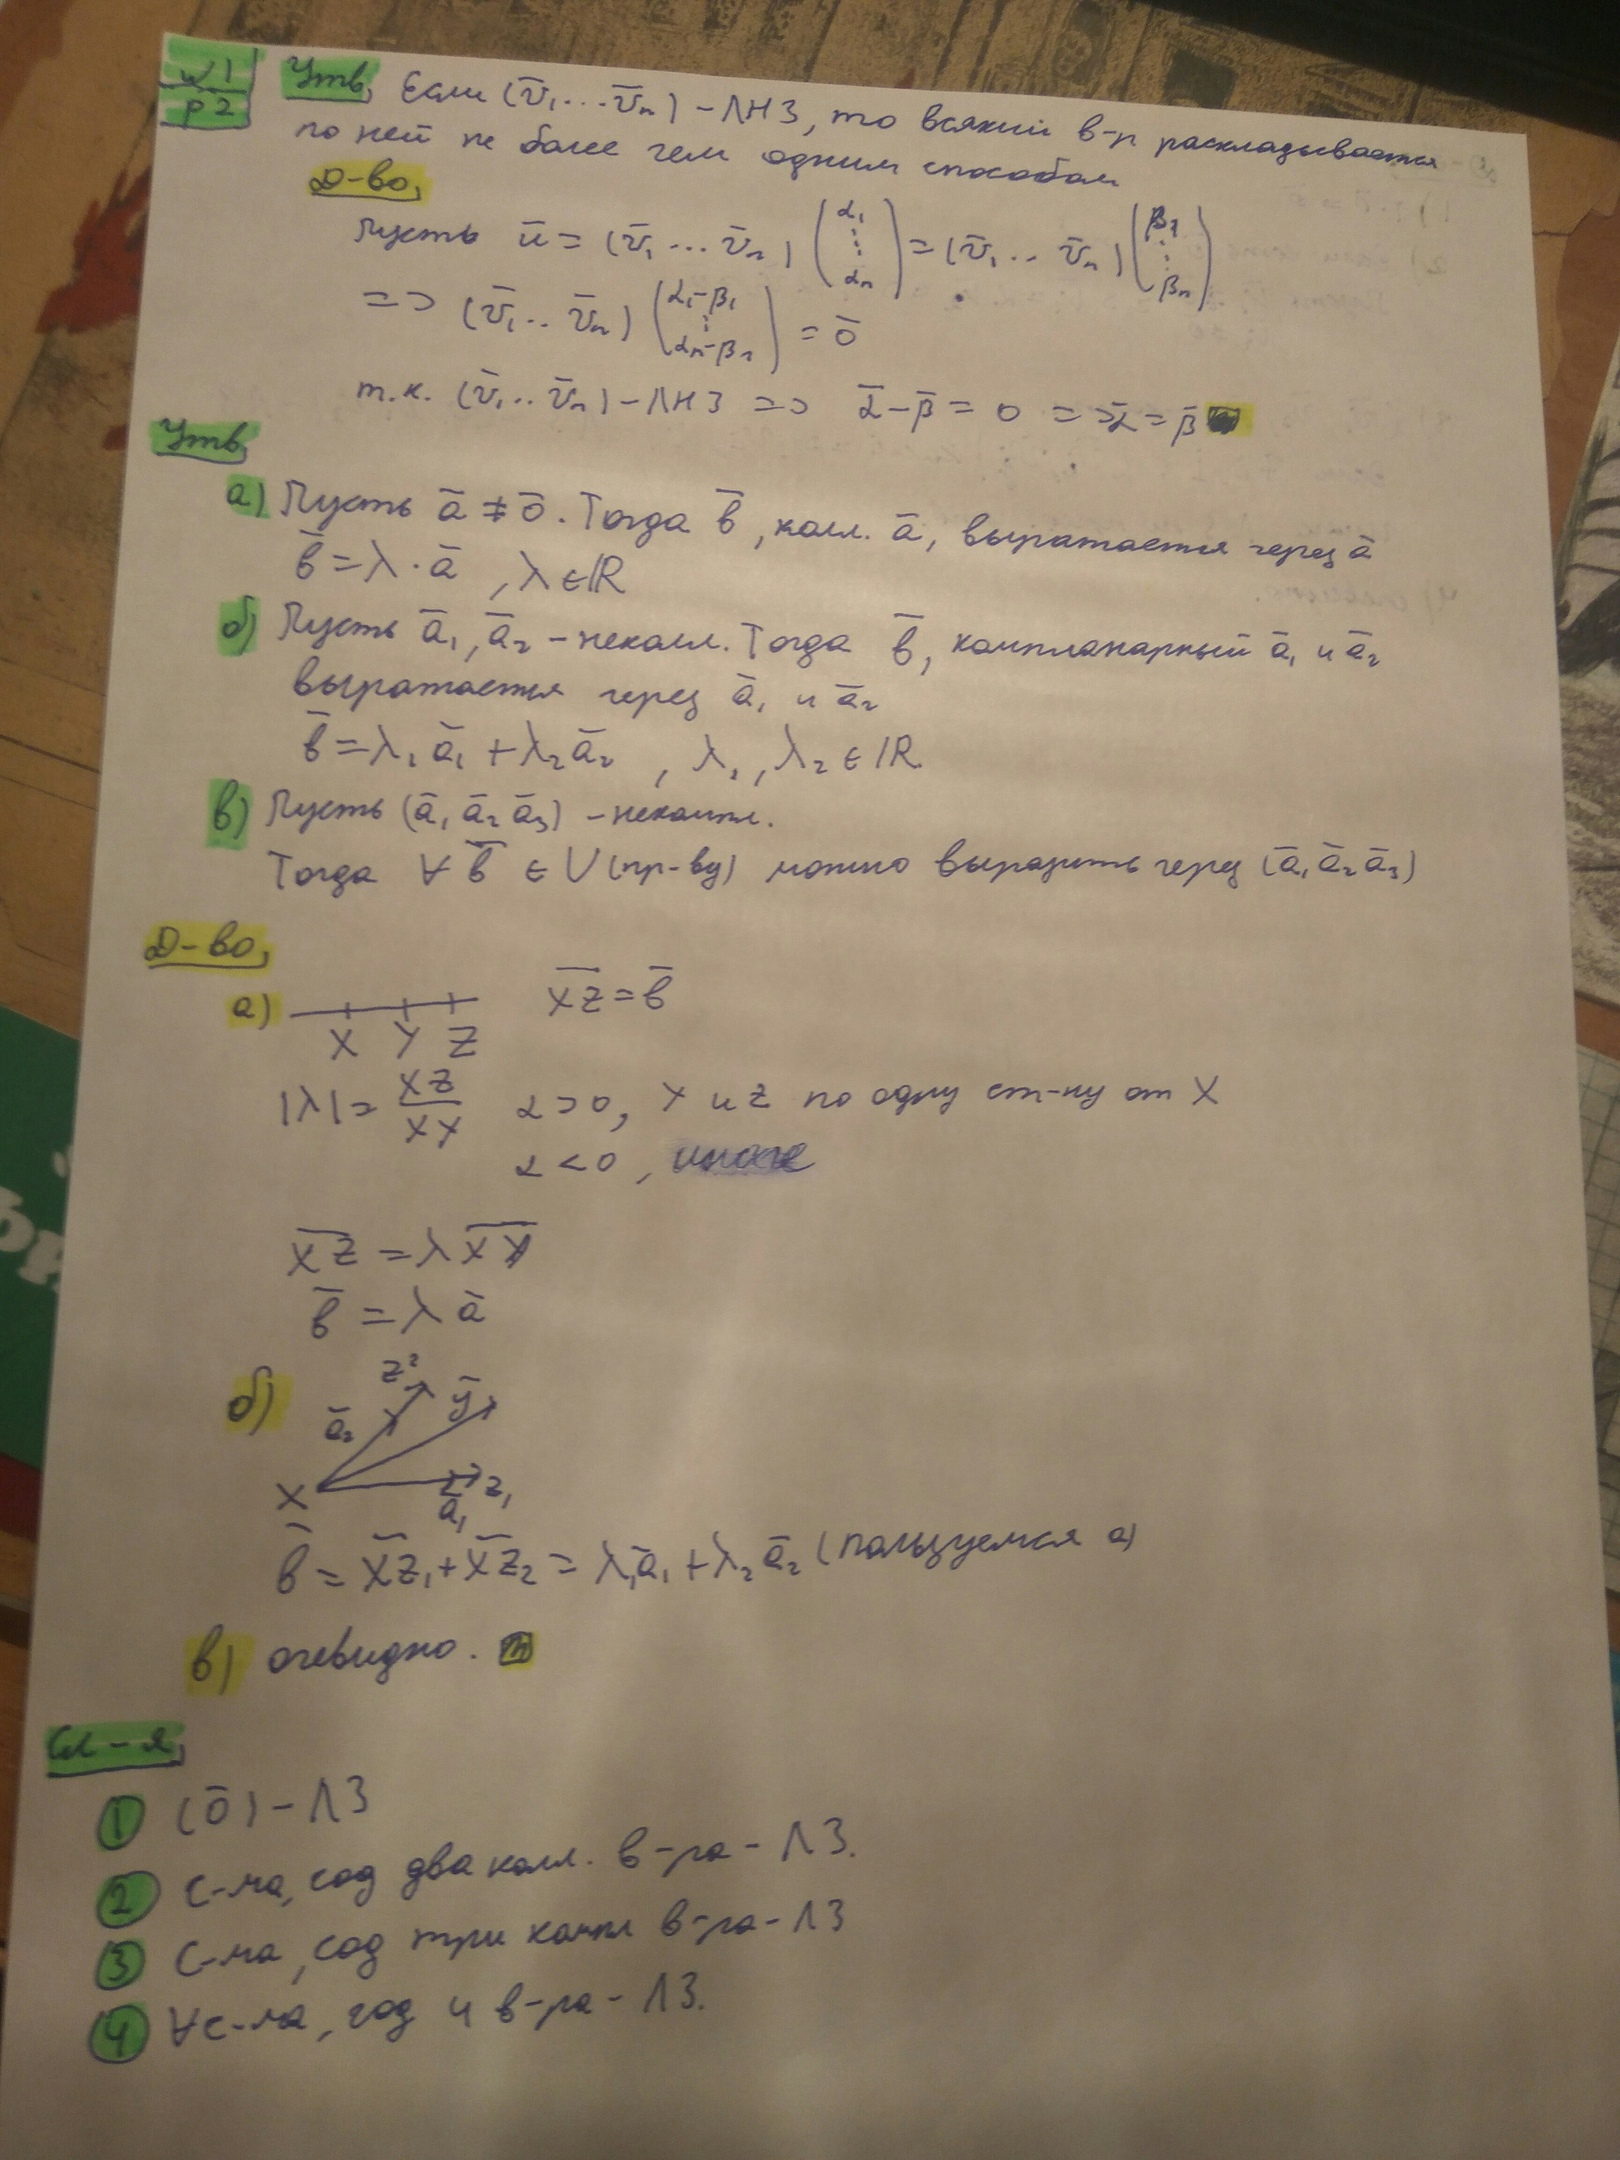 w1
p2
Утв. Если (v̄₁...v̄ₙ) - ЛНЗ, то всякий в-р раскладывается
по ней не более чем одним способом
Д-во,
Пусть ū = (v̄₁...v̄ₙ) (α₁ ⋮ αₙ) = (v̄₁..v̄ₙ) (β₁ ⋮ βₙ)
=> (v̄₁..v̄ₙ) (α₁-β₁ ⋮ αₙ-βₙ) = ō
т.к. (v̄₁..v̄ₙ) - ЛНЗ => ᾱ-β̄ = 0 => ᾱ = β̄
Утв
а) Пусть ā ≠ ō. Тогда b̄, колл. ā, выражается через ā
b̄ = λ·ā , λ ∈ ℝ
б) Пусть ā₁, ā₂ - неколл. Тогда b̄, компланарный ā₁ и ā₂
выражается через ā₁ и ā₂
b̄ = λ₁ā₁ + λ₂ā₂ , λ₁, λ₂ ∈ ℝ.
в) Пусть (ā₁ ā₂ ā₃) - некомпл.
Тогда ∀ b̄ ∈ V(пр-ву) можно выразить через (ā₁ ā₂ ā₃)
Д-во,
а) X Y Z X̄Z̄ = b̄
|λ| = XZ/XY α > 0, Y и Z по одну ст-ну от X
α < 0, иначе
X̄Z̄ = λ X̄Ȳ
b̄ = λ ā
б) z₂ ȳ
ā₂
X z₁
ā₁
b̄ = X̄Z̄₁ + X̄Z̄₂ = λ₁ā₁ + λ₂ā₂ (пользуемся а)
в) очевидно.
Сл-я,
1 (ō) - ЛЗ
2 С-ма, сод два колл. в-ра - ЛЗ.
3 С-ма, сод три компл в-ра - ЛЗ
4 ∀ с-ма, сод 4 в-ра - ЛЗ.